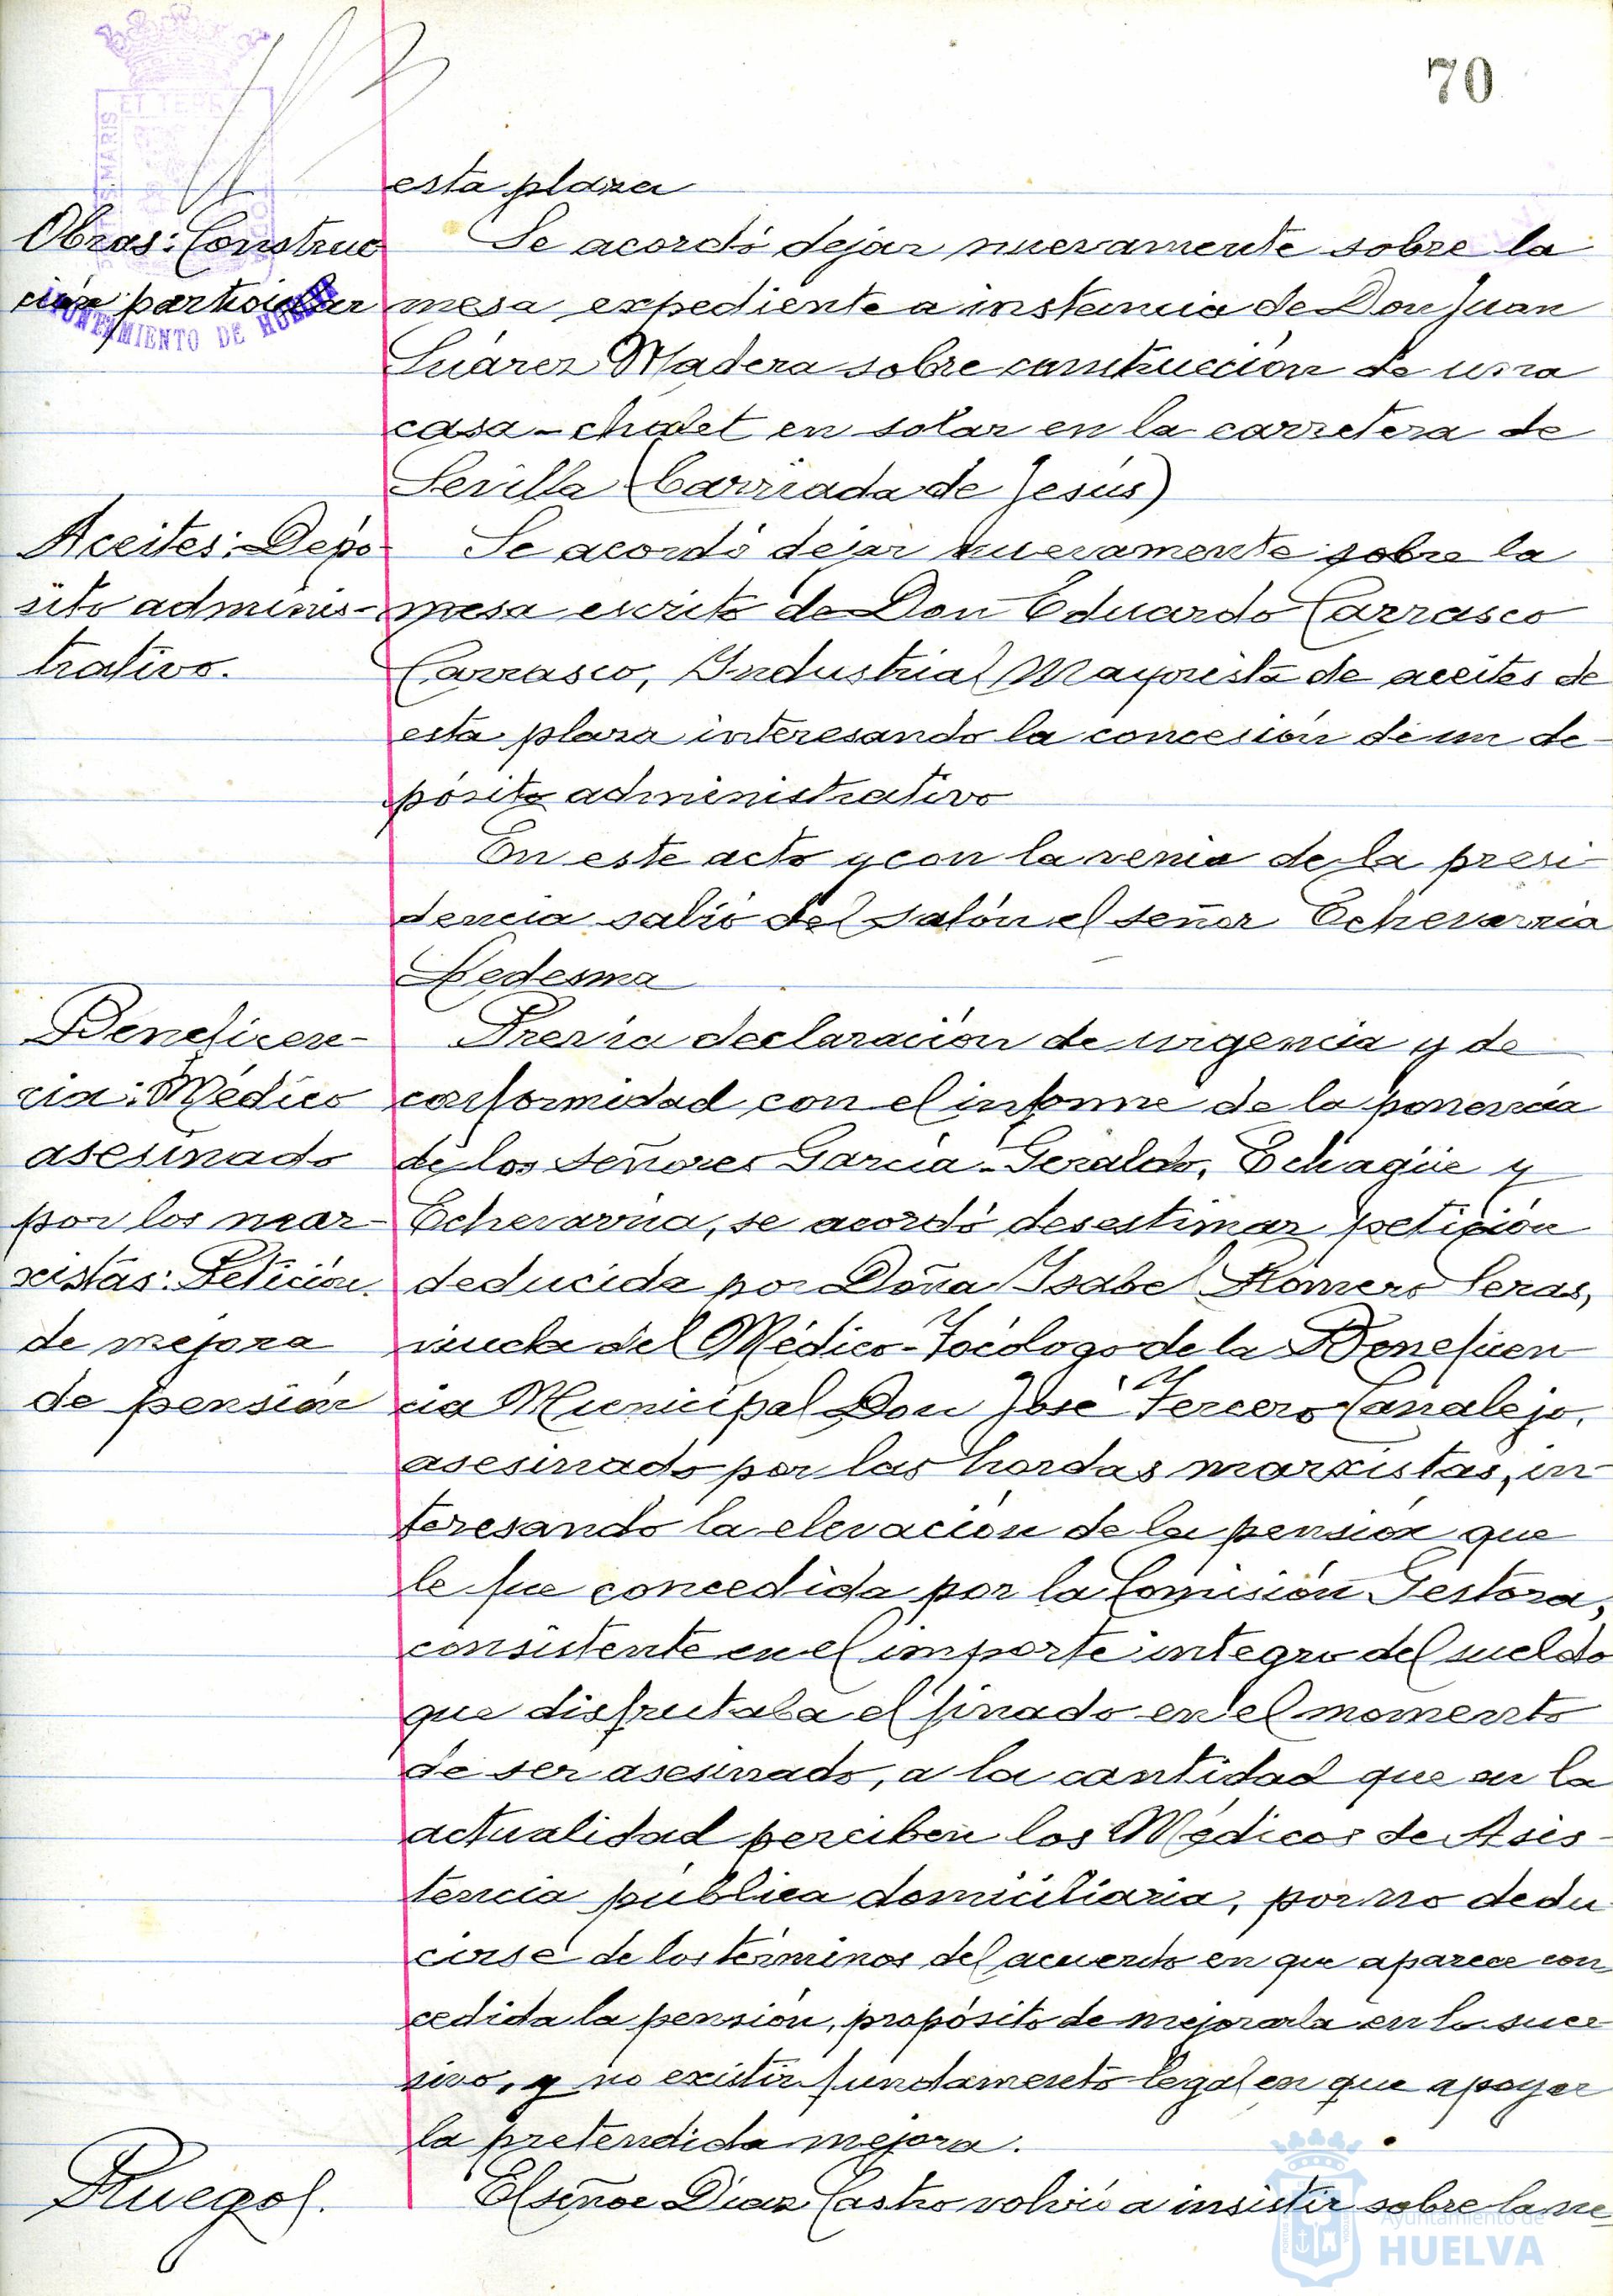 70
esta plaza
Obras: Construc
ción particular
Se acordó dejar nuevamente sobre la
mesa expediente a instancia de Don Juan
Suárez Madera sobre construcción de una
casa-chalet en solar en la carretera de
Sevilla (barriada de Jesús)
Aceites: Depó
sito adminis-
trativo.
Se acordó dejar nuevamente sobre la
mesa escrito de Don Eduardo Carrasco
Carrasco, Industrial Mayorista de aceites de
esta plaza interesando la concesión de un de-
pósito administrativo
En este acto y con la venia de la presi-
dencia salió del salón el señor Echevarria
Ledesma
Beneficen-
cia: Médico
asesinado
por los mar-
xistas: Petición
de mejora
de pensión
Previa declaración de urgencia y de
conformidad con el informe de la ponencia
de los señores Garcia-Geraldo, Echagüe y
Echevarria, se acordó desestimar petición
deducida por Doña Ysabel Romero Seras,
viuda del Médico-Tocólogo de la Beneficen
cia Municipal Don José Tercero Canalejo,
asesinado por las hordas marxistas, in-
teresando la elevación de la pensión que
le fue concedida por la Comisión Gestora,
consistente en el importe integro del sueldo
que disfrutaba el finado en el momento
de ser asesinado, a la cantidad que en la
actualidad perciben los Médicos de Asis-
tencia pública domiciliaria, por no dedu
cirse de los términos del acuerdo en que aparece con
cedida la pensión, propósito de mejorarla en lo suce
sivo, y no existir fundamento legal en que apoyar
la pretendida mejora.
Ruegos.
El señor Diaz Castro volvió a insistir sobre la ne-
AYUNTAMIENTO DE HUELVA
Ayuntamiento de
HUELVA